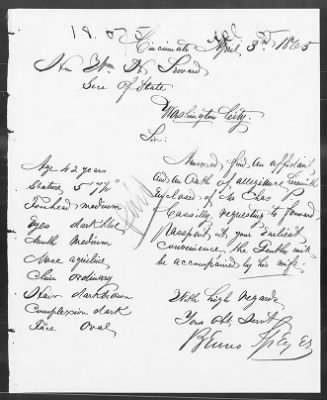 18,025
Cincinnati April, 3rd, 1865
Hon Wm H. Seward
Secr. of State
Washington City.
Sir:
Annexed find an affidavit
and an Oath of allegiance herewith
Enclosed of Mr Chas P
Cassilly, requesting to forward
Passport, at your Earliest
convenience, the Gentleman
be accompanied by his wife.
With high regards
Your Obt Servt
Age 42 years
Stature 5
Forehead medium
Eyes dark blue
Mouth medium
Nose aquiline
Chin ordinary
Hair dark brown
Complexion dark
Face Oval